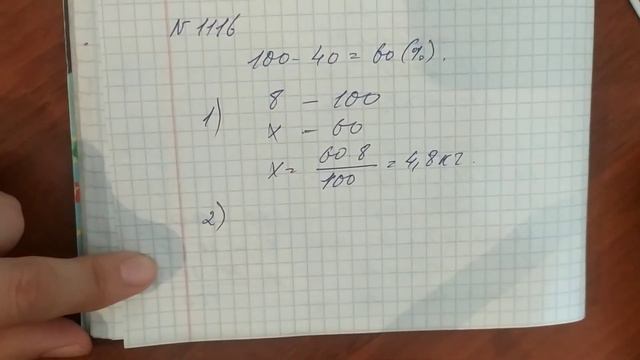 N 1116
100 - 40 = 60 (%).
1) 8 - 100
x - 60
x = 60·8/100 = 4,8 кг.
2)